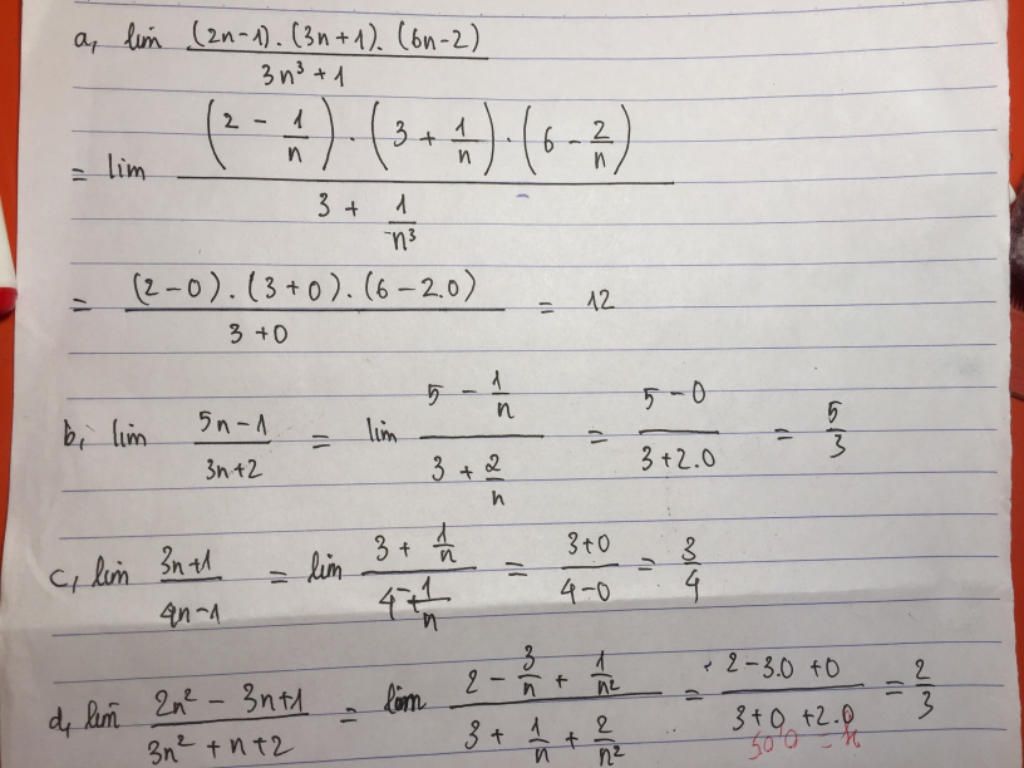 a, lim (2n-1).(3n+1).(6n-2) / 3n³+1
= lim (2 - 1/n).(3 + 1/n).(6 - 2/n) / 3 + 1/n³
= (2-0).(3+0).(6-2.0) / 3+0 = 12
b, lim 5n-1 / 3n+2 = lim 5 - 1/n / 3 + 2/n = 5-0 / 3+2.0 = 5/3
c, lim 3n+1 / 4n-1 = lim 3 + 1/n / 4 - 1/n = 3+0 / 4-0 = 3/4
d, lim 2n² - 3n+1 / 3n² + n+2 = lim 2 - 3/n + 1/n² / 3 + 1/n + 2/n² = 2-3.0+0 / 3+0+2.0 = 2/3